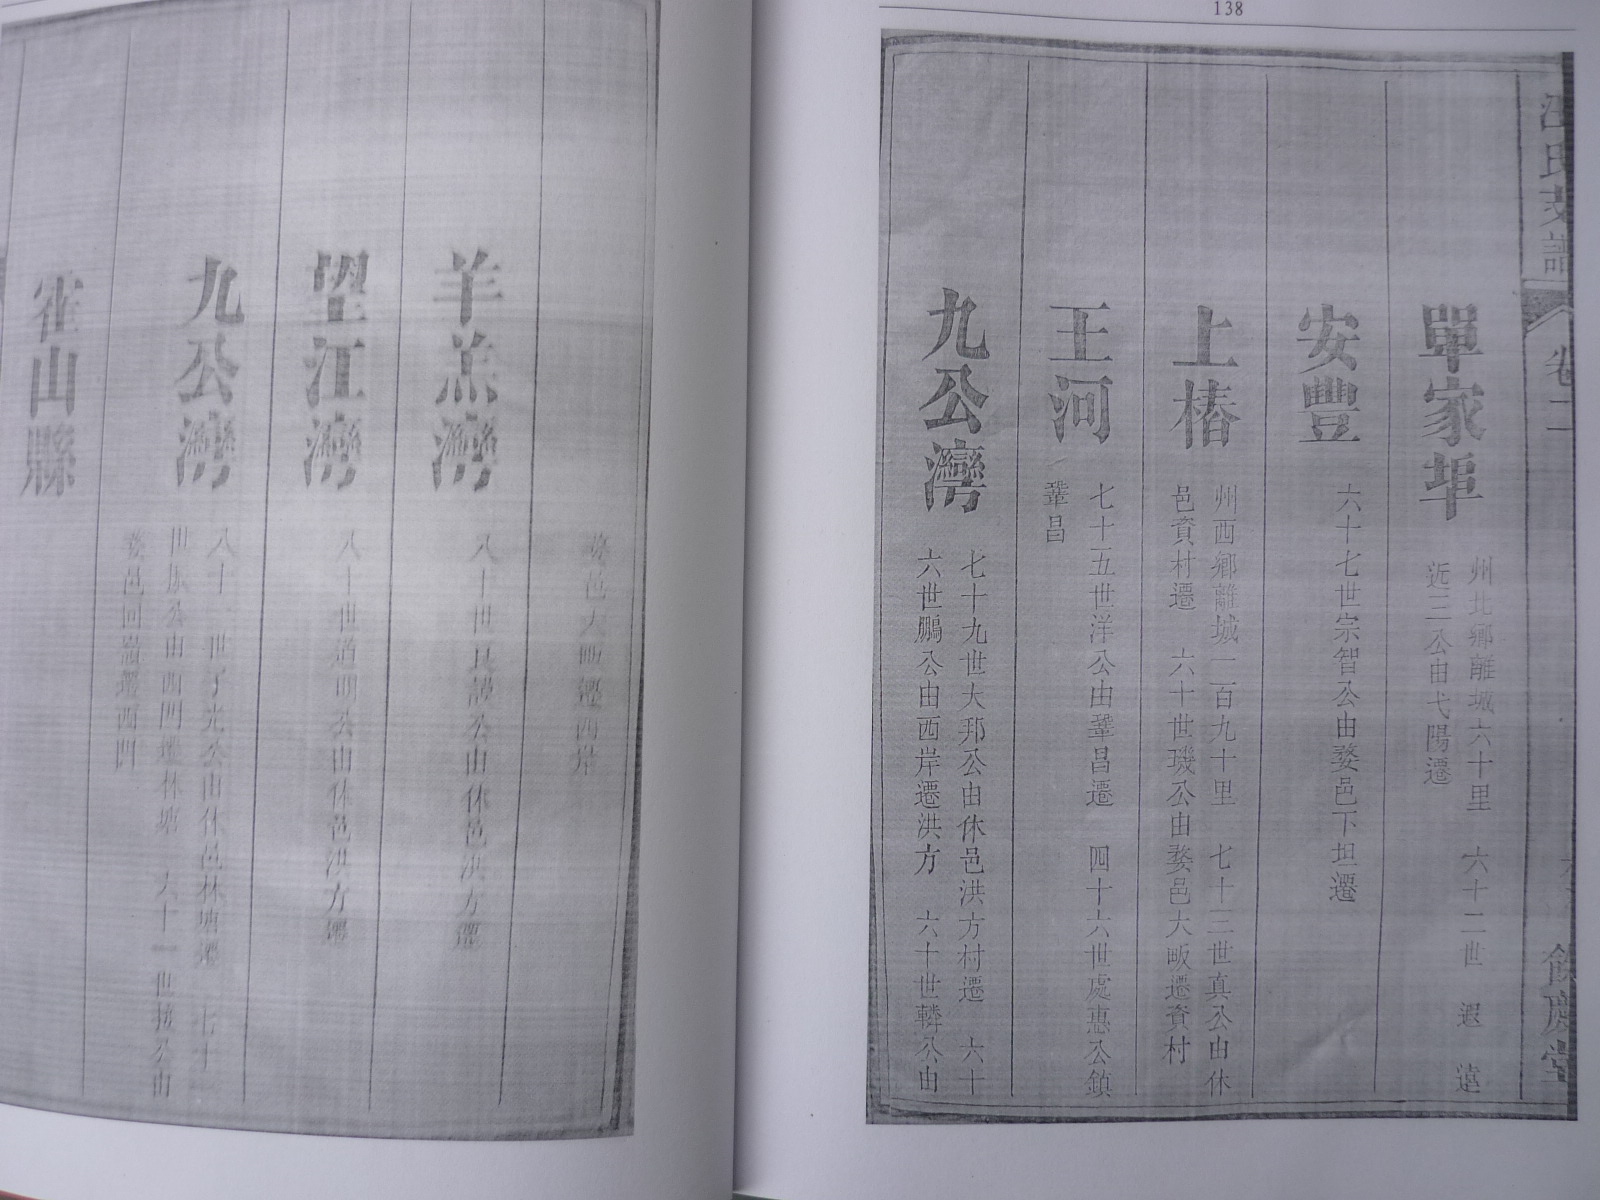 138
汪氏支譜
卷二
餘慶堂
單家埠
州北鄉離城六十里 六十二世 遐 遠
近三公由弋陽遷
安豐
六十七世宗智公由婺邑下坦遷
上椿
州西鄉離城一百九十里 七十三世真公由休
邑資村遷 六十世璣公由婺邑大畈遷資村
王河
七十五世洋公由鞏昌遷 四十六世處惠公鎮
鞏昌
九公灣
七十九世大邦公由休邑洪方村遷 六十
六世鵬公由西岸遷洪方 六十世轔公由
婺邑大畈遷西岸
羊羔灣
八十世 公由休邑洪方遷
望江灣
八十世道明公由休邑洪方遷
九公灣
八十 世子光公由休邑林塘遷 七十
世 公由西門遷林塘 六十一世接公由
婺邑回嶺遷西門
霍山縣